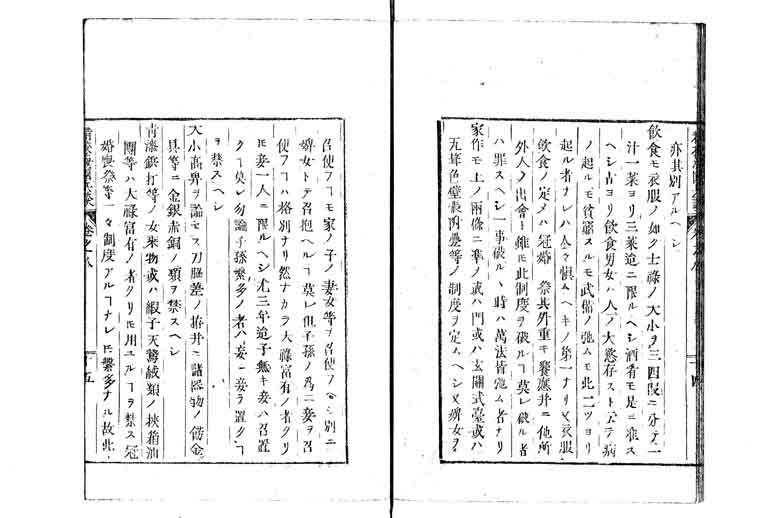 亦其別アルヘシ
飲食モ衣服ノ如ク士祿ノ大小ヲ三四段ニ分テ一
汁一菜ヨリ三菜迄ニ限ルヘシ酒肴モ是ニ准ス
ヘシ古ヨリ飲食男女ハ人ノ大慾存スト云テ病
ノ起ルモ貧窮スルモ武備ノ弛ムモ此二ツヨリ
起ル者ナレハ人々愼ムヘキノ第一ナリ又衣服
飲食ノ定メハ冠婚祭其外重キ饗應并ニ他所
外人ノ出會ト雖モ此制度ヲ破ルヿ莫レ破ル者
ハ罪スヘシ一事破ルヽ時ハ萬法皆弛ム者ナリ
家作モ上ノ兩條ニ準ノ或ハ門或ハ玄關式臺或ハ
五等色壁表内疊等ノ制度ヲ定ムヘシ又婢女ヲ
召使フヿモ家ノ子ノ妻女等ヲ召使フヘシ別ニ
婢女トテ召抱ヘルヿ莫レ但子孫ノ爲ニ妾ヲ召
使フヿハ格別ナリ然ナカラ大祿富有ノ者タリ
モ妾一人ニ限ルヘシ尤三年迄子無キ妾ハ召置
クヿ莫レ勿論子孫繁多ノ者ハ妾一妾ヲ置クヿ
ヲ禁スヘシ
大小高卑ヲ論セス刀脇差ノ拵并ニ諸器物ノ餝金
具等ニ金銀赤銅ノ類ヲ禁スヘシ
青漆鋲打等ノ女乘物或ハ緞子天鵞絨類ノ挾箱油
團等ハ大祿富有ノ者タリ𪜈用ユルヿヲ禁ス冠
婚喪祭等一々制度アルヿナレ𪜈繁多ナル故此
卷之八
十五
十四